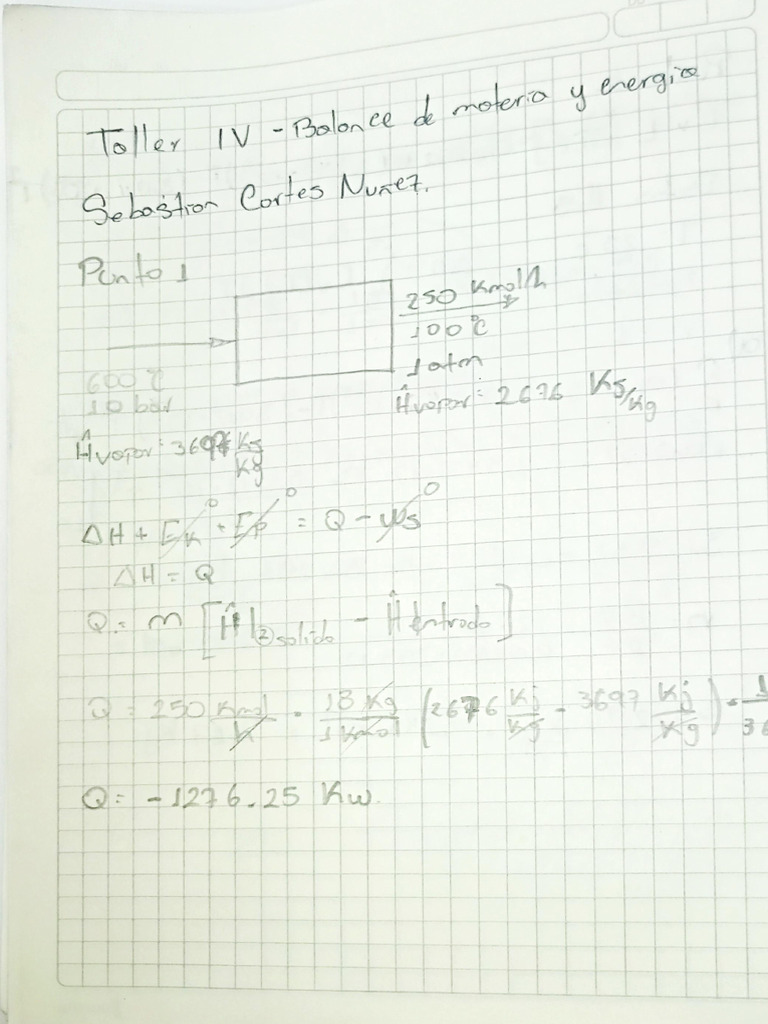 Taller IV - Balance de materia y energia
Sebastian Cortes Nuñez.
Punto 1
250 Kmol/h
100°C
1 atm
Ĥvapor: 2676 KJ/Kg
600 °C
10 bar
Ĥvapor: 3697 KJ/Kg
ΔH + Ek + Ep = Q - Ws
0 0 0
ΔH = Q
Q = m [Ĥ H2 salida - Ĥ entrada]
Q = 250 Kmol/h · 18 Kg/1 Kmol (2676 Kj/Kg - 3697 Kj/Kg) · 1/36
Q = -1276.25 Kw.